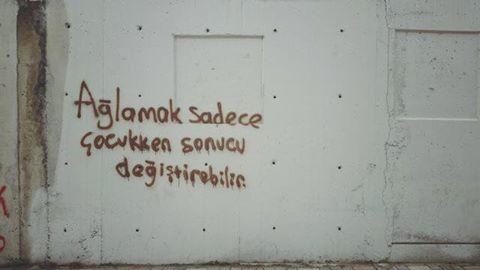 Ağlamak sadece
çocukken sonucu
değiştirebilir.